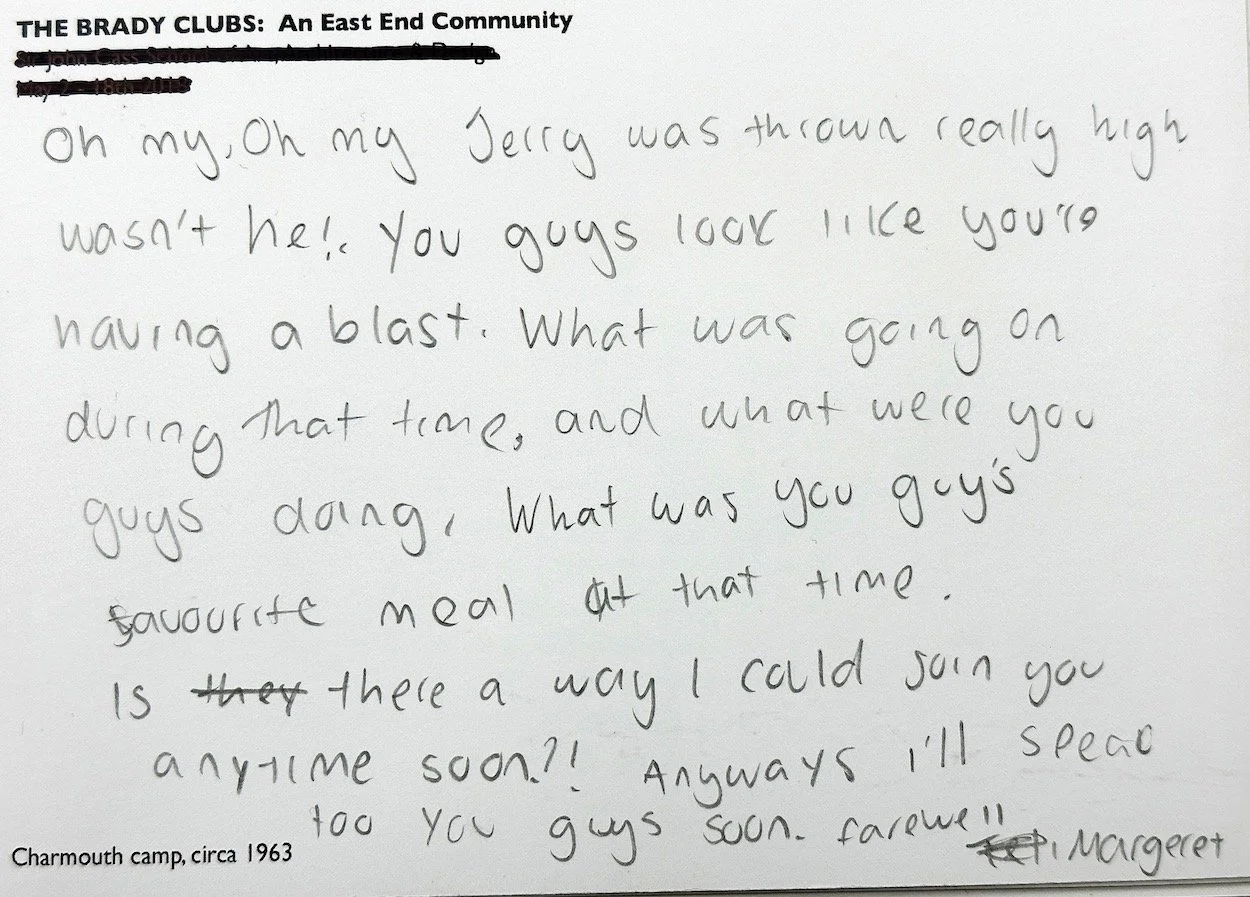 THE BRADY CLUBS: An East End Community
Oh my, Oh my Jerry was thrown really high
wasn't he!. You guys look like you're
having a blast. What was going on
during that time, and what were you
guys doing, What was you guy's
favourite meal at that time.
Is they there a way I could join you
anytime soon?! Anyways i'll speak
too you guys soon. farewell
Margeret
Charmouth camp, circa 1963